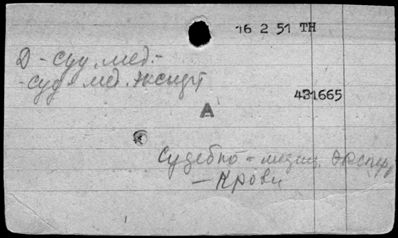 16 2 51 TH
Д - суд. мед. -
- суд - мед. эксперт
431665
A
судебно - медиц. экспер
- Крови